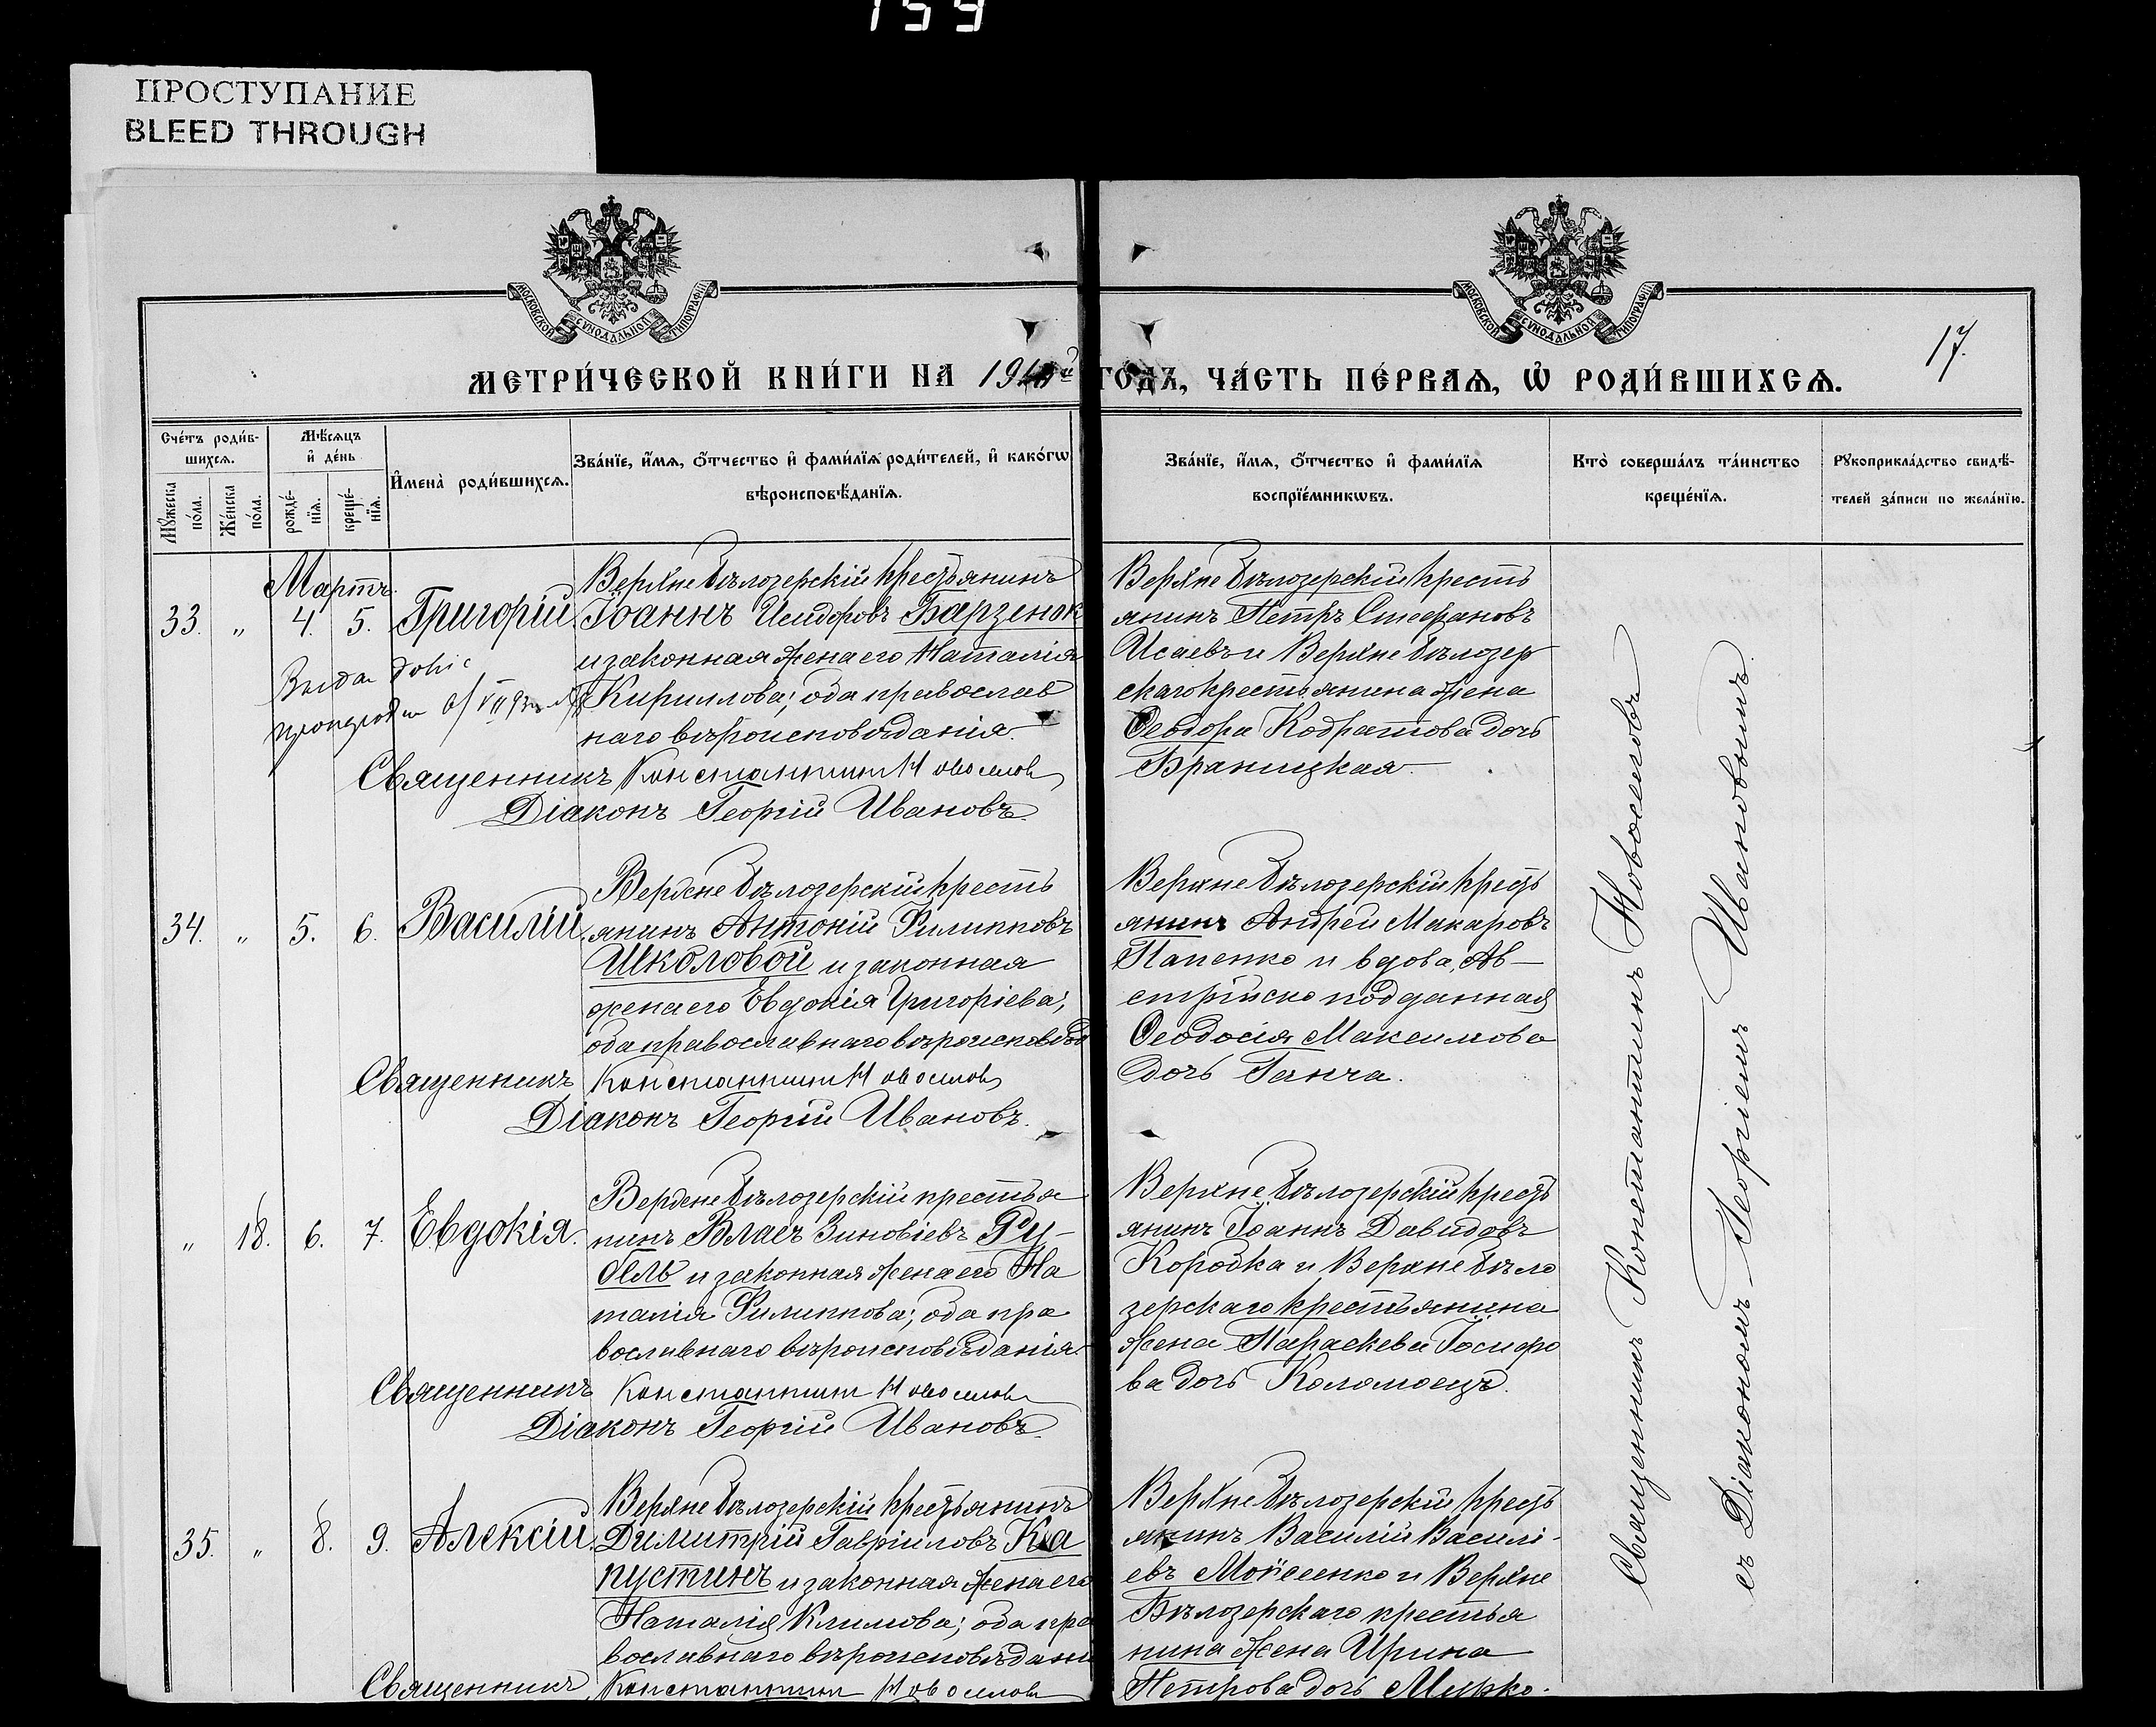 159
ПРОСТУПАНИЕ
BLEED THROUGH
МОСКОВСКОЙ СѴНОДАЛЬНОЙ ТИПОГРАФІИ
МОСКОВСКОЙ СѴНОДАЛЬНОЙ ТИПОГРАФІИ
17.
МЕТРИ́ЧЕСКОЙ КНИ́ГИ НА ГОДЪ, ЧА́СТЬ ПЕ́РВАѦ, Ѡ҆ РОДИ́ВШИХСѦ.
Сче́тъ роди́в-
шихсѧ.
Мꙋ́жеска по́ла.
Же́нска по́ла.
Мѣ́сѧцъ
и҆ де́нь
рожде́-
нїѧ.
креще́-
нїѧ.
И҆мена̀ роди́вшихсѧ.
Зва́нїе, и҆́мѧ, ѻ҆́тчество и҆ фами́лїѧ роди́телей, и҆ како́гѡ
вѣроисповѣ́данїѧ.
Зва́нїе, и҆́мѧ, ѻ҆́тчество и҆ фами́лїѧ
воспрїе́мникѡвъ.
Кто̀ соверша́лъ та́инство
креще́нїѧ.
Рꙋкоприкла́дство свидѣ́-
телей за́писи по жела́нїю.
Мартъ.
33. " 4. 5. Григорій
Верхне Бѣлозерскій крестьянинъ
Іоаннъ Исидоровъ Барзенок
и законная жена его Наталія
Кириллова; оба православ
наго вѣроисповѣданія.
Священникъ Константинъ Новоселов
Діаконъ Георгій Ивановъ.
Верхне Бѣлозерскій кресть
янинъ Петръ Стефановъ
Исаевъ и Верхне Бѣлозер
скаго крестьянина жена
Ѳеодора Кодратова дочь
Браницкая.
34. " 5. 6. Василій.
Верхне Бѣлозерскій кресть
янинъ Антоній Филипповъ
Школовой и законная
жена его Евдокія Григоріева;
оба православнаго вѣроисповѣд
Священникъ Константинъ Новоселов
Діаконъ Георгій Ивановъ.
Верхне Бѣлозерскій кресть
янинъ Андрей Макаровъ
Папенко и вдова, Ав-
стрійско подданная
Ѳеодосія Максимова
дочь Ганча.
" 18. 6. 7. Евдокія.
Верхне Бѣлозерскій крестья
нинъ Власъ Зиновіевъ Ру-
бель и законная жена его На
талія Филиппова; оба пра
вославнаго вѣроисповѣданія.
Священникъ Константинъ Новоселов
Діаконъ Георгій Ивановъ.
Верхне Бѣлозерскій кресть
янинъ Іоаннъ Давидовъ
Коробка и Верхне Бѣло
зерскаго крестьянина
жена Параскева Іосифо
ва дочь Коломоецъ.
35. " 8. 9. Алексій.
Верхне Бѣлозерскій крестьянинъ
Димитрій Гавріиловъ Ка
пустинъ и законная жена его
Наталія Климова; оба пра
вославнаго вѣроисповѣдані
Священникъ Константинъ Новоселов
Верхне Бѣлозерскій кресть
янинъ Василій Василі-
евъ Моисеенко и Верхне
Бѣлозерскаго крестья
нина жена Ирина
Петрова дочь Мирко-
Священникъ Константинъ Новоселовъ
съ Діакономъ Георгіемъ Ивановымъ.